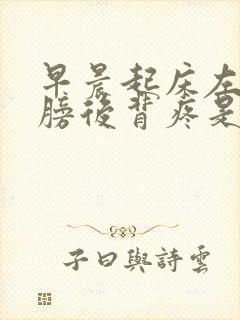 早晨起床左
膀後背疼是
子曰與詩雲